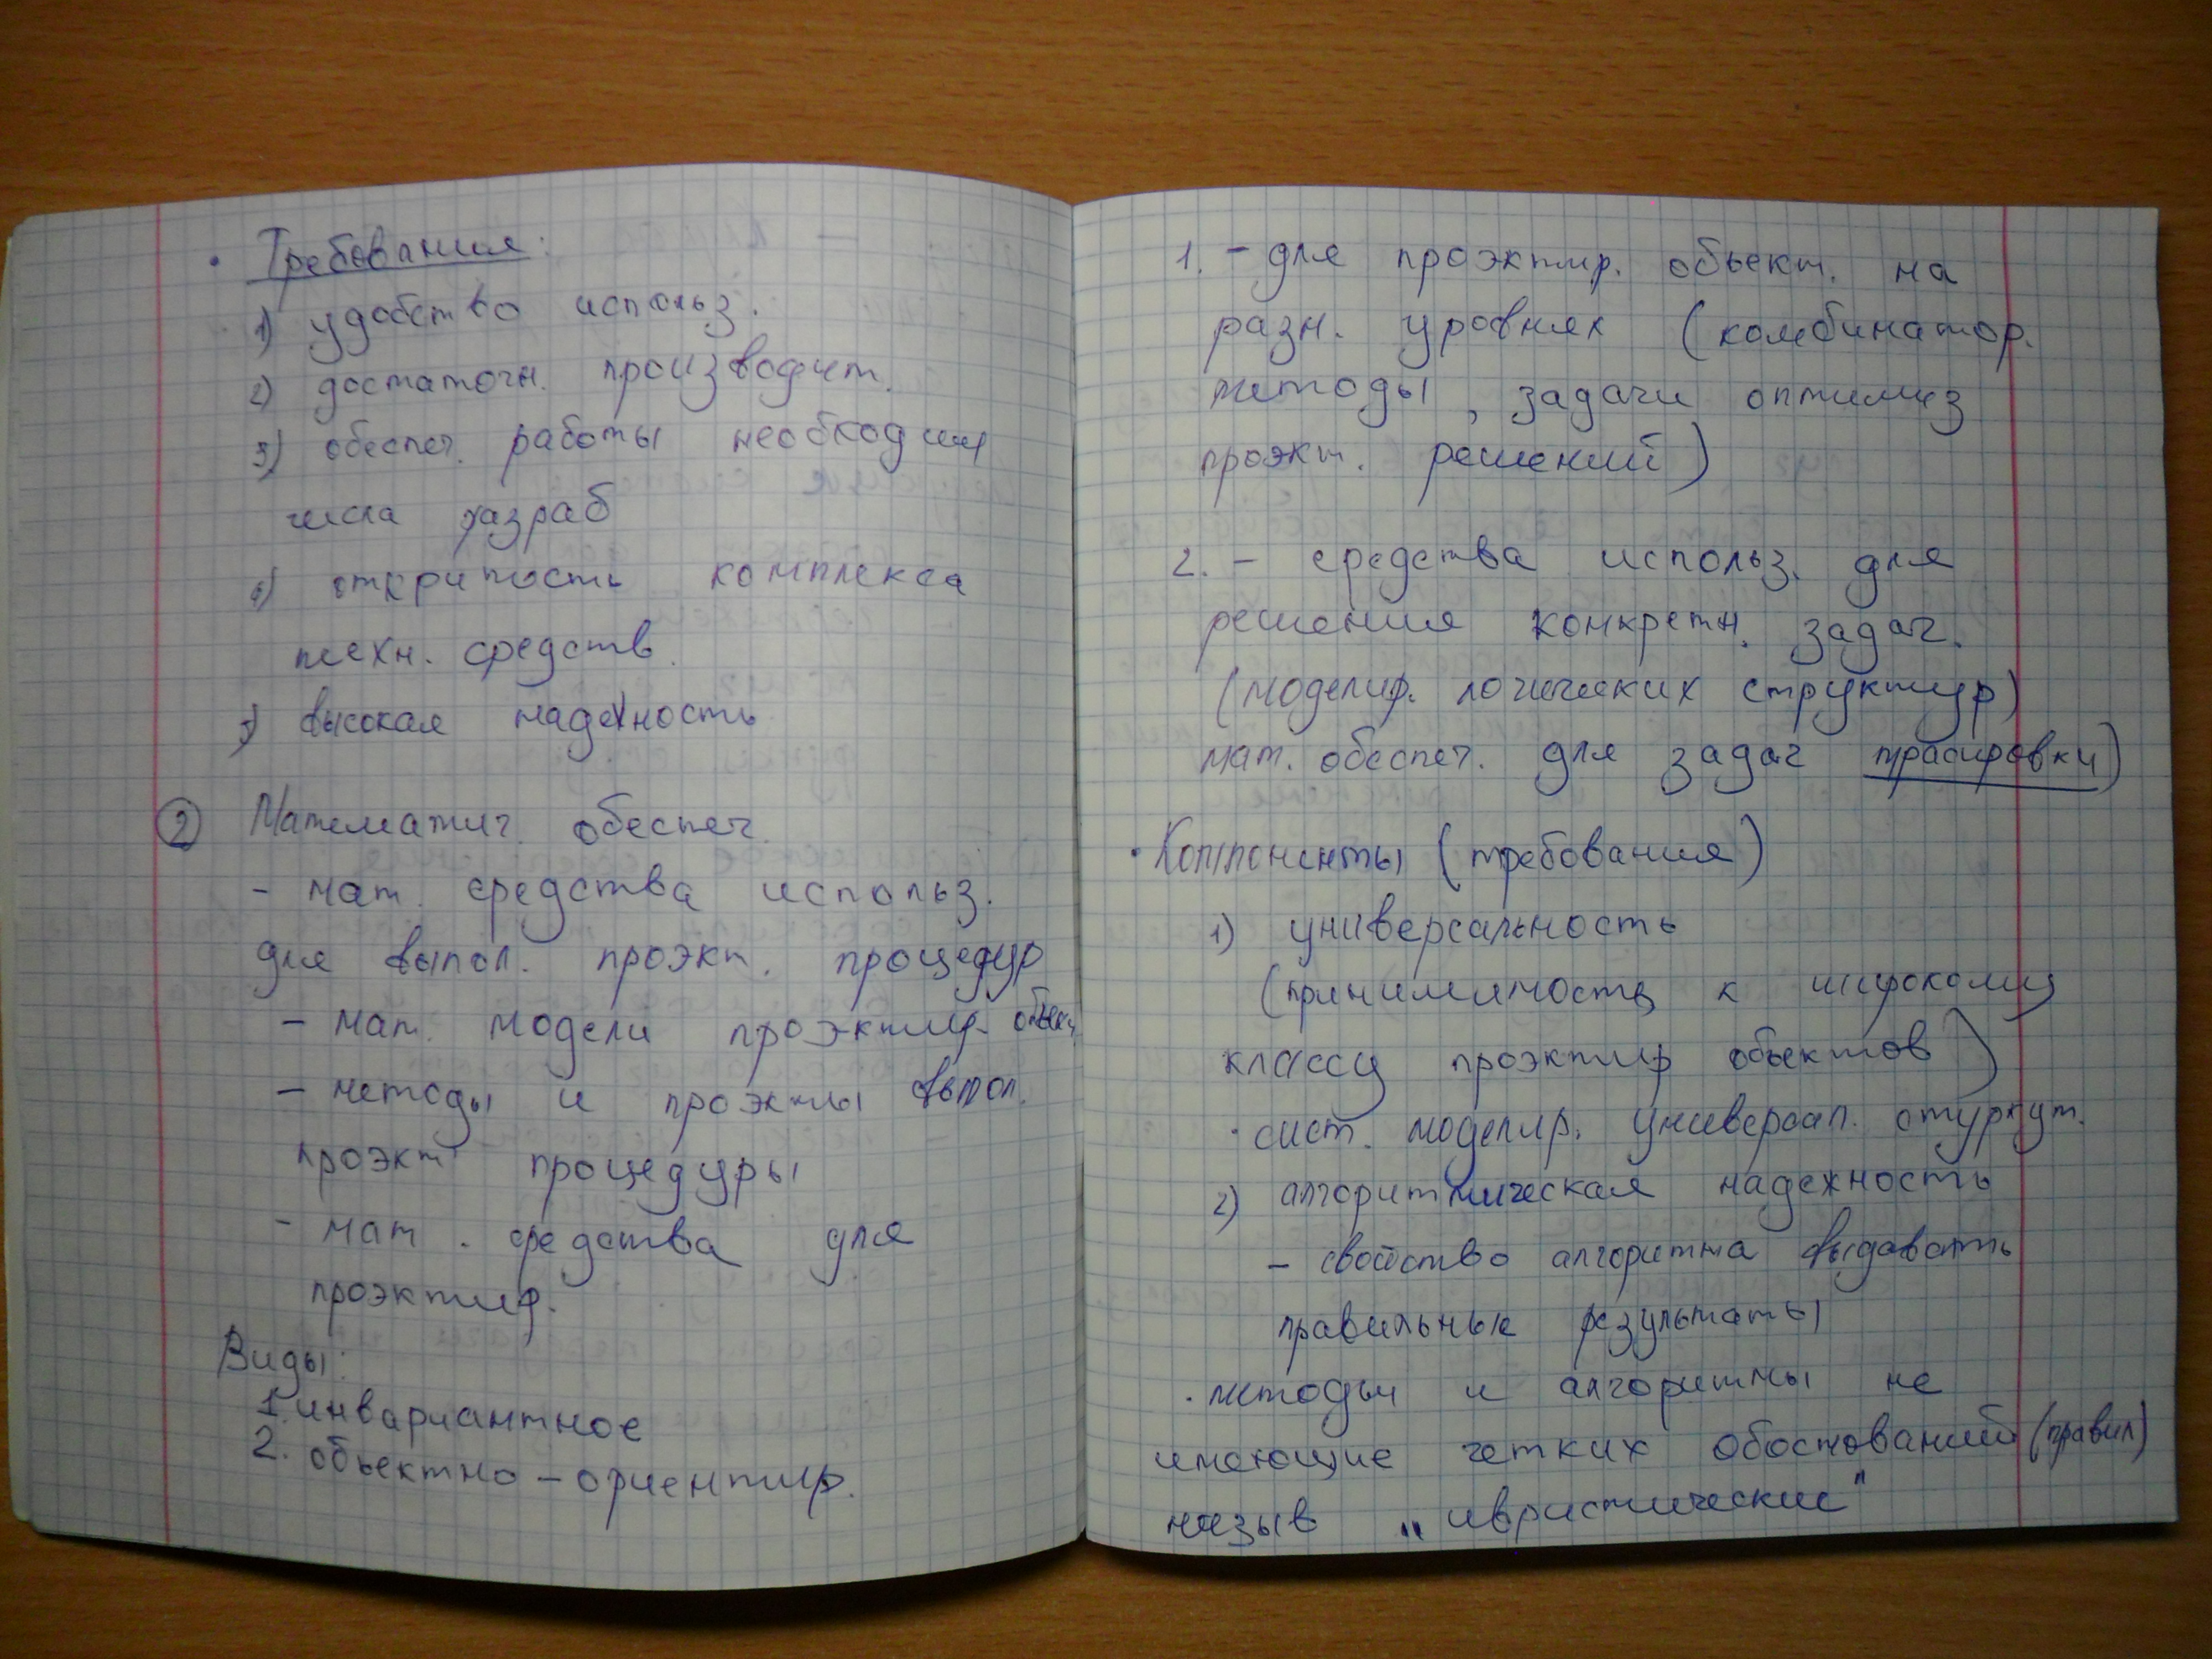 • Требования:
1) удобство использ.
2) достаточн. производит.
3) обеспеч. работы необходим
числа разраб
4) откритость комплекса
техн. средств.
5) высокая надежность
2 Математич. обеспеч.
- мат. средства использ.
для выпол. проэкт. процедур
- мат. модели проэктир. объект
- методы и проэкты выпол.
проэкт процедуры
- мат. средства для
проэктир.
Виды:
1. инвариантное
2. обьектно - ориентир.
1. - для проэктир. обьект. на
разн. уровнях (комбинатор.
методы, задачи оптимиз
проэкт. решений)
2. - средства использ. для
решения конкретн. задач.
(моделир. логических структур)
мат. обеспеч. для задач трасировки)
• Компоненты (требования)
1) универсальность
(принимимость к широкому
классу проэктир обьектов)
• сист. моделир. универсал.
2) алгоритмическая надежность
- свойство алгоритма выдавать
правильные результаты
• методы и алгоритмы не
имеющие четких обоснований (правил)
назыв „ивристические"